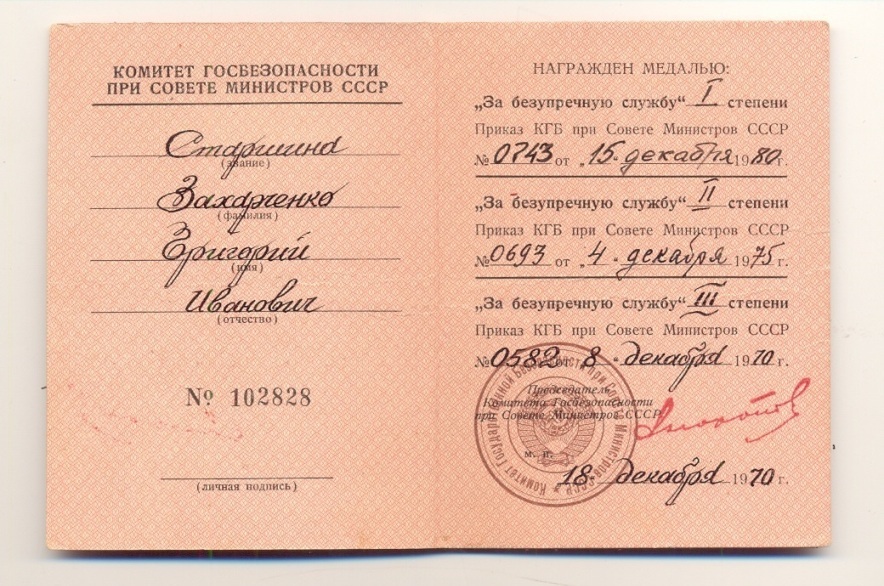 КОМИТЕТ ГОСБЕЗОПАСНОСТИ
ПРИ СОВЕТЕ МИНИСТРОВ СССР
Старшина
(звание)
Захарченко
(фамилия)
Григорий
(имя)
Иванович
(отчество)
№ 102828
(личная подпись)
НАГРАЖДЕН МЕДАЛЬЮ:
„За безупречную службу“ I степени
Приказ КГБ при Совете Министров СССР
№ 0743 от „15. декабря 1980 г.
„За безупречную службу“ II степени
Приказ КГБ при Совете Министров СССР
№ 0693 от „4. декабря 1975 г.
„За безупречную службу“ III степени
Приказ КГБ при Совете Министров СССР
№ 0582 от 8. декабря 1970 г.
Председатель
Комитета Госбезопасности
при Совете Министров СССР
м. п.
Комитет Государственной Безопасности при Совете Министров СССР
18. декабря 1970 г.